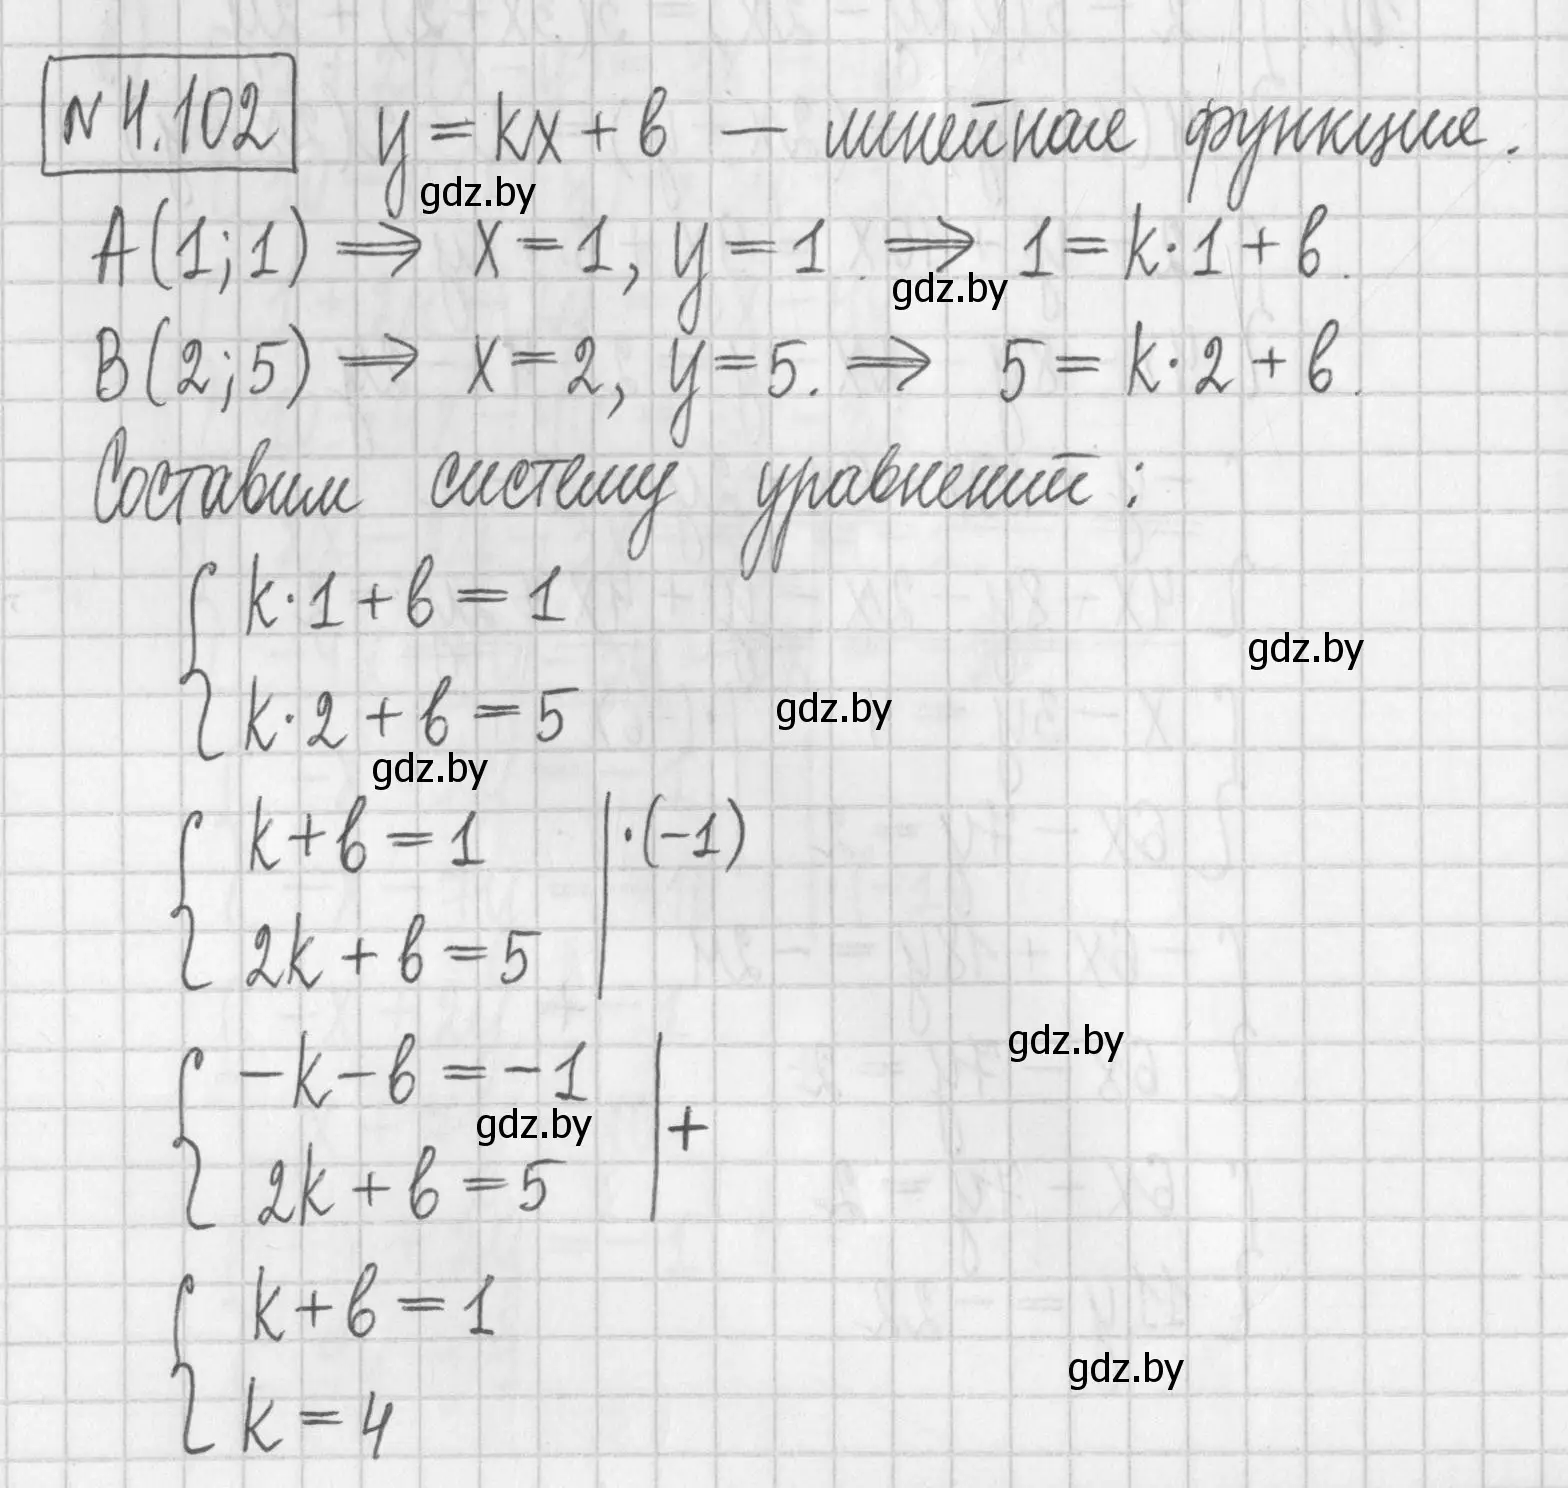 №4.102 y = kx + b — линейная функция.
gdz.by
A(1;1) ⟹ x=1, y=1. ⟹ 1=k·1+b.
gdz.by
B(2;5) ⟹ x=2, y=5. ⟹ 5=k·2+b.
Составим систему уравнений:
{ k·1+b=1
gdz.by
k·2+b=5
gdz.by
gdz.by
{ k+b=1 |·(-1)
2k+b=5
gdz.by
{ -k-b=-1 | +
gdz.by
2k+b=5
{ k+b=1
gdz.by
k=4